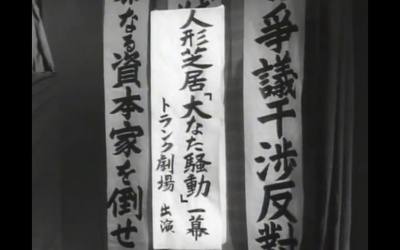 爭議干渉反對
人形芝居「大なた騒動」一幕
トランク劇場 出演
なる資本家を倒せ